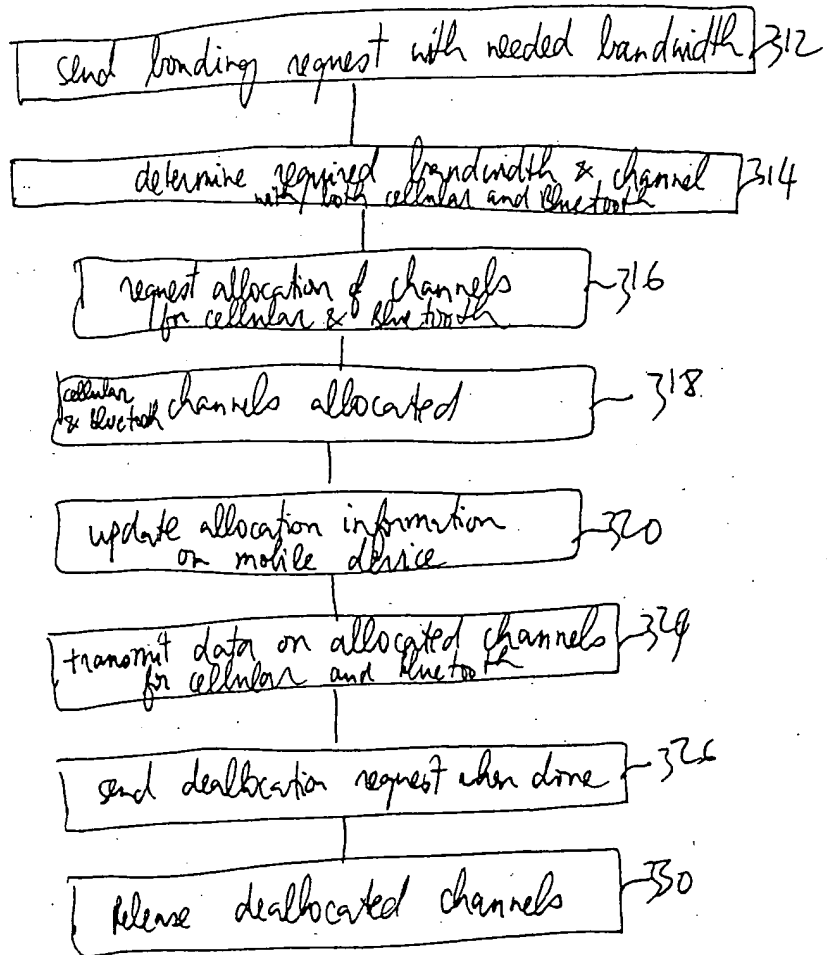 send bonding request with needed bandwidth 312
determine required bandwidth & channel 314
with/both cellular and Bluetooth
request allocation of channels 316
for cellular & Bluetooth
cellular
& Bluetooth channels allocated 318
update allocation information 320
on mobile device
transmit data on allocated channels 324
for cellular and Bluetooth
send deallocation request when done 326
Release deallocated channels 330